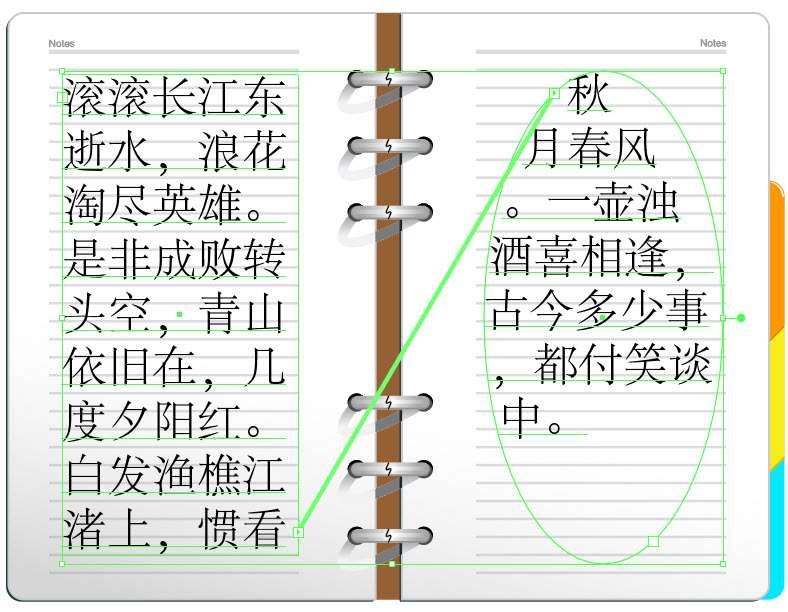 Notes
滚滚长江东
逝水，浪花
淘尽英雄。
是非成败转
头空，青山
依旧在，几
度夕阳红。
白发渔樵江
渚上，惯看
Notes
秋
月春风
。一壶浊
酒喜相逢，
古今多少事
，都付笑谈
中。